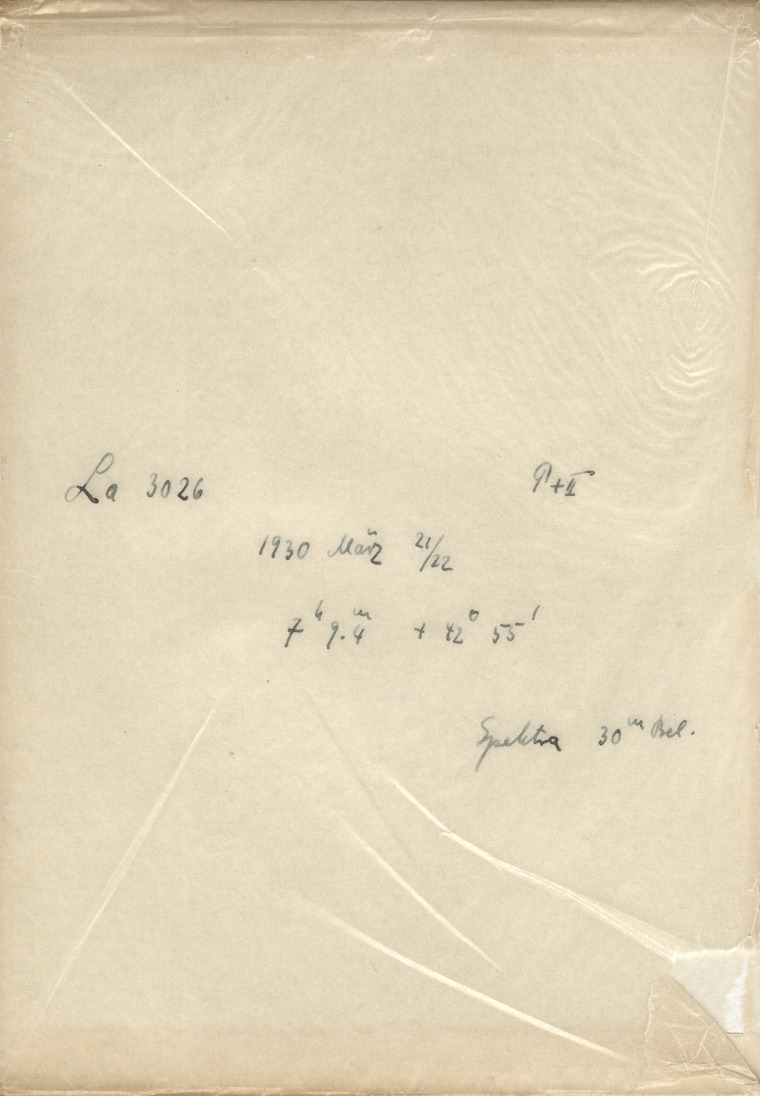 La 3026 P+II
1930 März 21/22
7ʰ 9.4ᵐ + 42° 55'
Spektra 30ᵐ Bel.